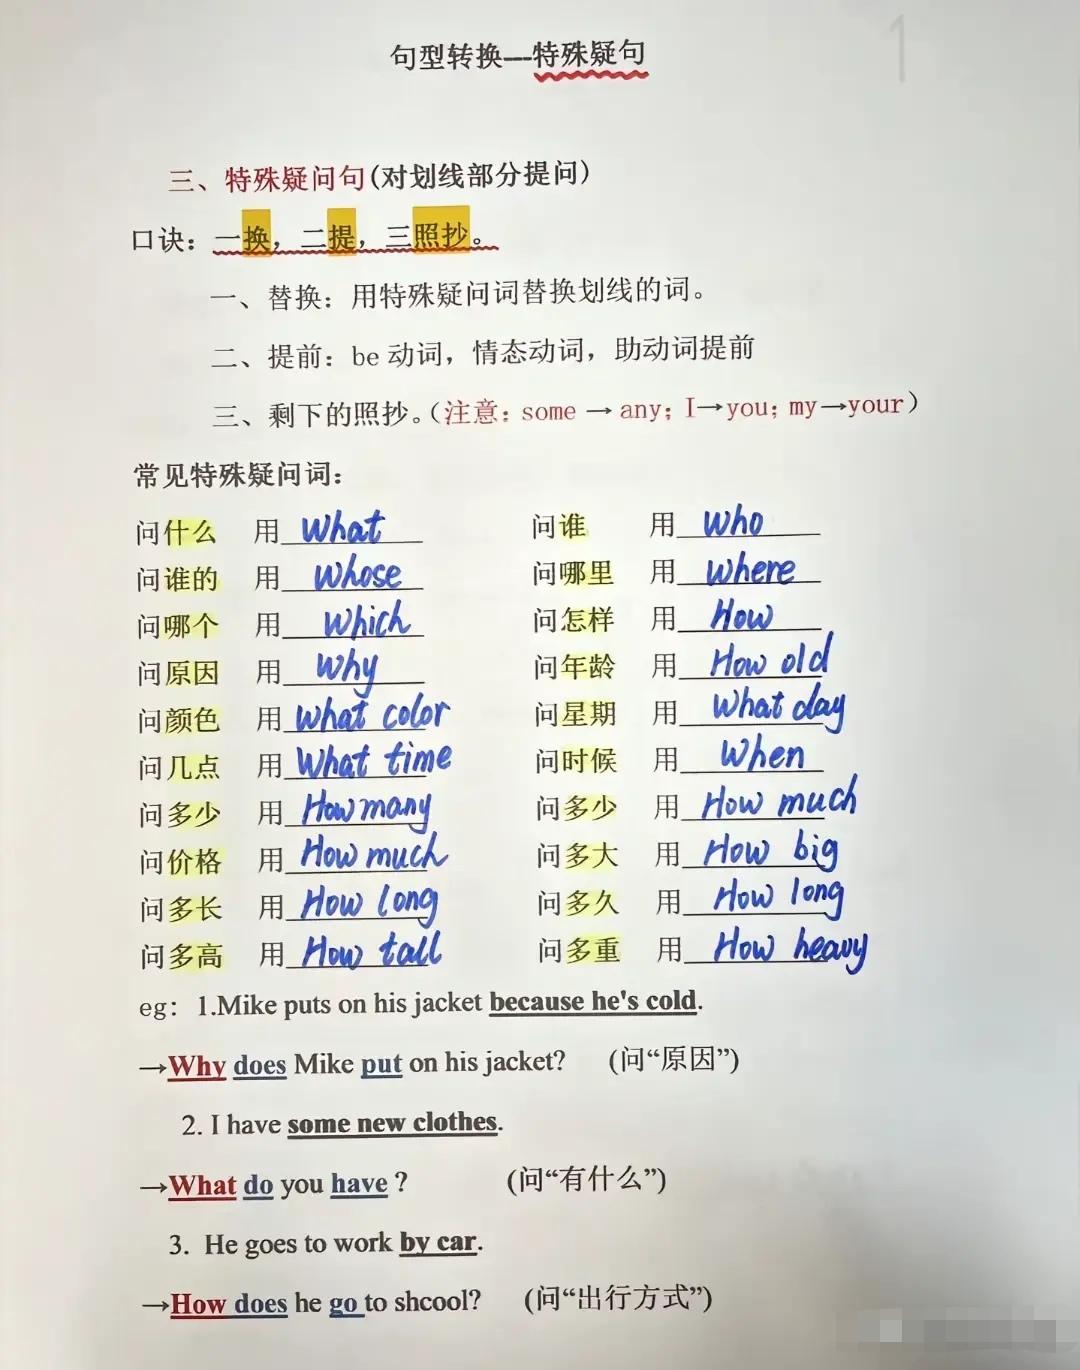 句型转换---特殊疑句
1
三、特殊疑问句(对划线部分提问)
口诀：一换，二提，三照抄。
一、替换：用特殊疑问词替换划线的词。
二、提前：be 动词，情态动词，助动词提前
三、剩下的照抄。（注意：some → any; I→you; my→your）
常见特殊疑问词：
问什么 用 What 问谁 用 who
问谁的 用 whose 问哪里 用 where
问哪个 用 which 问怎样 用 How
问原因 用 why 问年龄 用 How old
问颜色 用 what color 问星期 用 What day
问几点 用 What time 问时候 用 When
问多少 用 How many 问多少 用 How much
问价格 用 How much 问多大 用 How big
问多长 用 How long 问多久 用 How long
问多高 用 How tall 问多重 用 How heavy
eg：1.Mike puts on his jacket because he's cold.
→Why does Mike put on his jacket? (问“原因”)
2. I have some new clothes.
→What do you have ? (问“有什么”)
3. He goes to work by car.
→How does he go to shcool? (问“出行方式”)